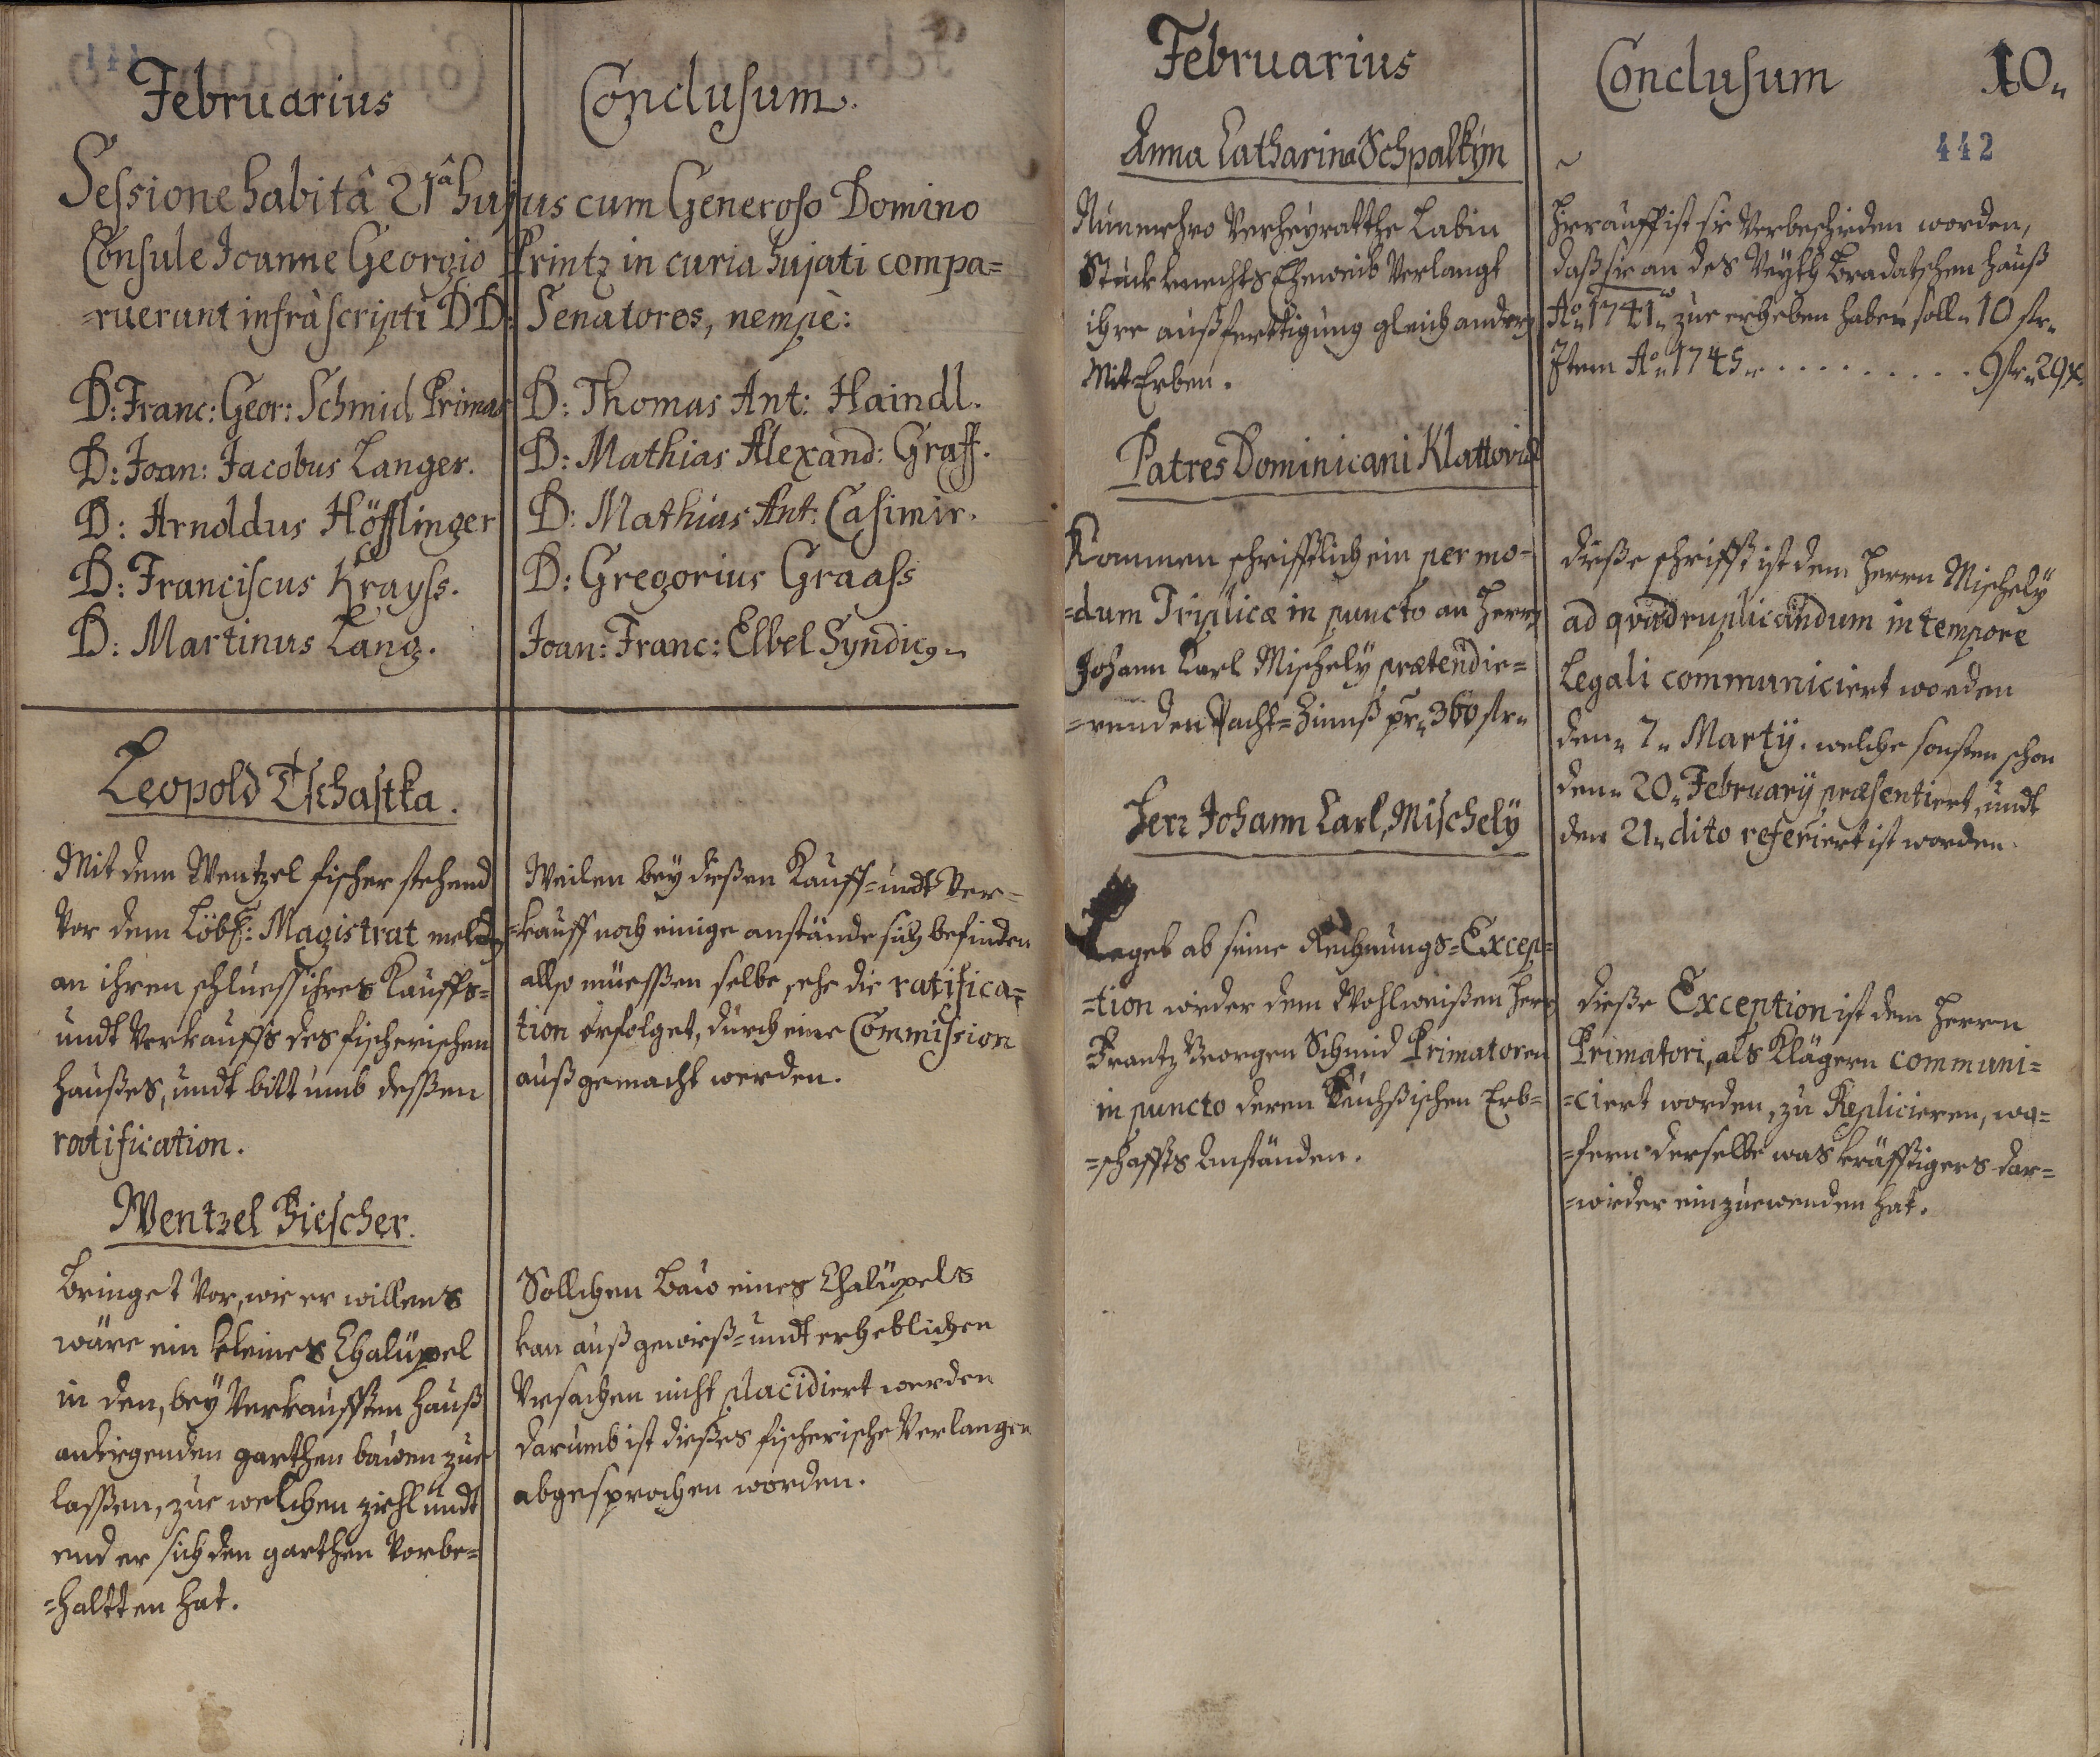 Februarius
Conclusum.
Sessione habitâ 21â hujus cum Generoso Domino
Consule Joanne Georgio Printz in curia hujati compa=
=ruerunt infràscripti DD: Senatores, nempè:
D: Franc: Geor: Schmid Primas
D: Joan: Jacobus Langer.
D: Arnoldus Höfflinger
D: Franciscus Krayss.
D: Martinus Lang.
D: Thomas Ant: Haindl.
D: Mathias Alexand: Graff.
D: Mathias Ant: Casimir.
D: Gregorius Graass
Joan: Franc: Elbel Syndicg
Leopold Tschastka.
Mit dem Wentzel fischer stehend
vor dem Löbl: Magistrat melden
an ihren schluess ihres Kauffs=
undt Verkauffs des fischerischen
haußes, undt bitt umb deßen
ratification.
Weilen bey dießen Kauff= undt Ver=
=kauff noch einige anstände sich befinden
also müessen selbe, ehe die ratifica=
tion erfolget, durch eine Commission
außgemacht werden.
Wentzel Fiescher.
Bringet vor, wie er willens
wäre ein kleines Chalupel
in den, bey verkaufften hauß
anliegenden garthen bauen zue
lassen, zue welchen ziehl undt
end er sich den garthen vorbe=
=haltten hat.
Sollchen bau eines Chalupels
kan auß gewieß= undt erheblichen
Ursachen nicht placidiert werden
darumb ist dießes fischerische Verlangen
abgesprochen worden.
Februarius
Conclusum
10.
442
Anna Catharina Schpalkin
Nunmehro Verheyratthe Labin
Stuck knechts Eheweib Verlangt
ihre außferttigung gleich andern
Mit Erben.
hierauff ist sie Verbeschieden worden,
daß sie an des Veyth Bradatschen hauß
Ao. 1741. zue erheben haben soll 10 flr.
Item Ao. 1745. . . . . . . . . . . 9 flr. 29 x.
Patres Dominicani Klattoviae
Kommen schrifftlich ein per mo-
=dum Triplicae in puncto an Herrn
Johann Carl Mischely praetendie=
=renden Pacht=Zinnß pr. 360 flr.
dieße schrifft ist dem Herrn Mischely
ad quadruplicandum in tempore
Legali communiciert worden
den 7. Marty. welche sonsten schon
den 20. February praesentiert, undt
den 21. dito referiert ist worden.
Herr Johann Carl Mischely
Leget ab seine Rechnungs=Excep=
=tion wieder dem Wohlweißen Herrn
Frantz Georgen Schmid Primatoren
in puncto deren Erb=
=schaffts Anständen.
dieße Exception ist dem Herrn
Primatori, als Klägern communi=
=ciert worden, zu Replicieren, wo=
=fern derselbe was kräfftigers dar=
=wieder einzuewenden hat.